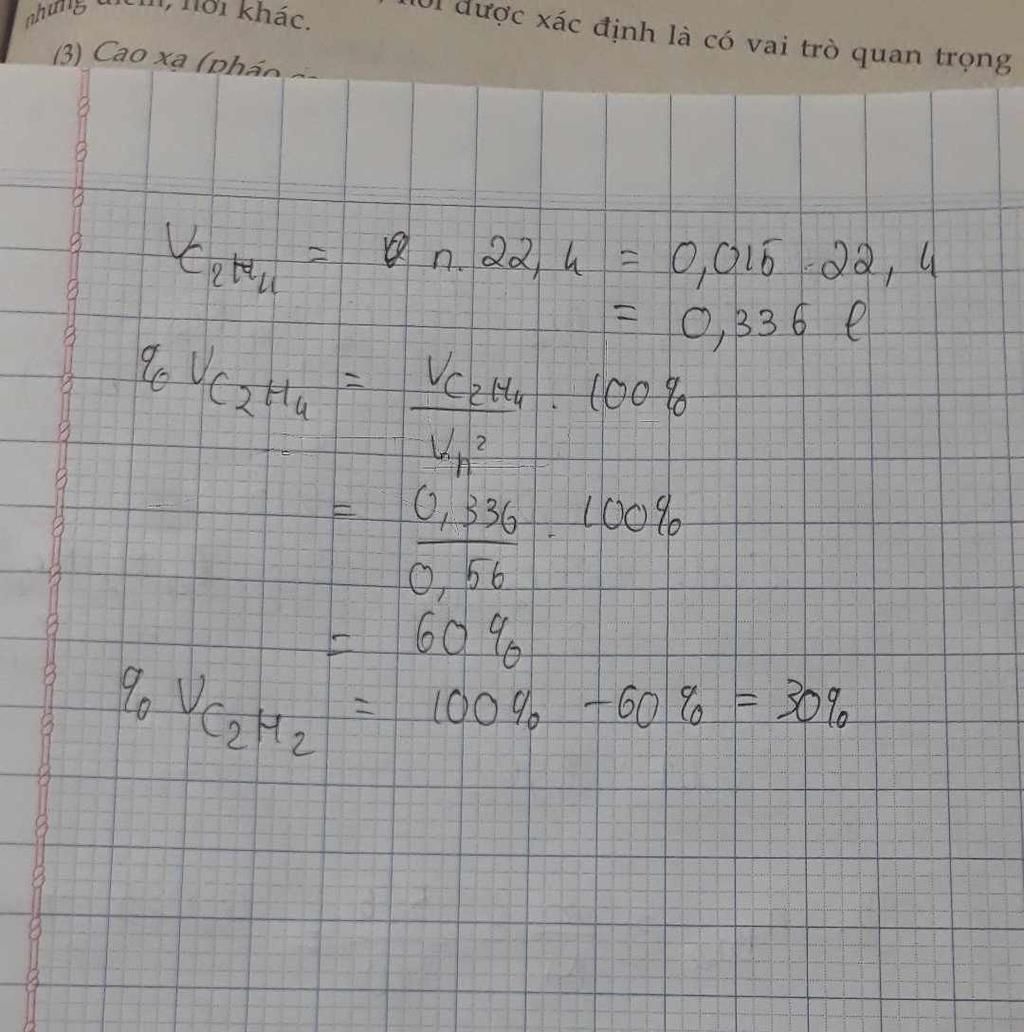 những điểm, nơi khác.
nơi được xác định là có vai trò quan trọng
(3) Cao xạ (pháo
V C₂H₄ = n. 22,4 = 0,015 . 22,4
= 0,336 l
% V C₂H₄ = V C₂H₄ / V h² . 100%
= 0,336 / 0,56 . 100%
= 60%
% V C₂H₂ = 100% - 60% = 30%